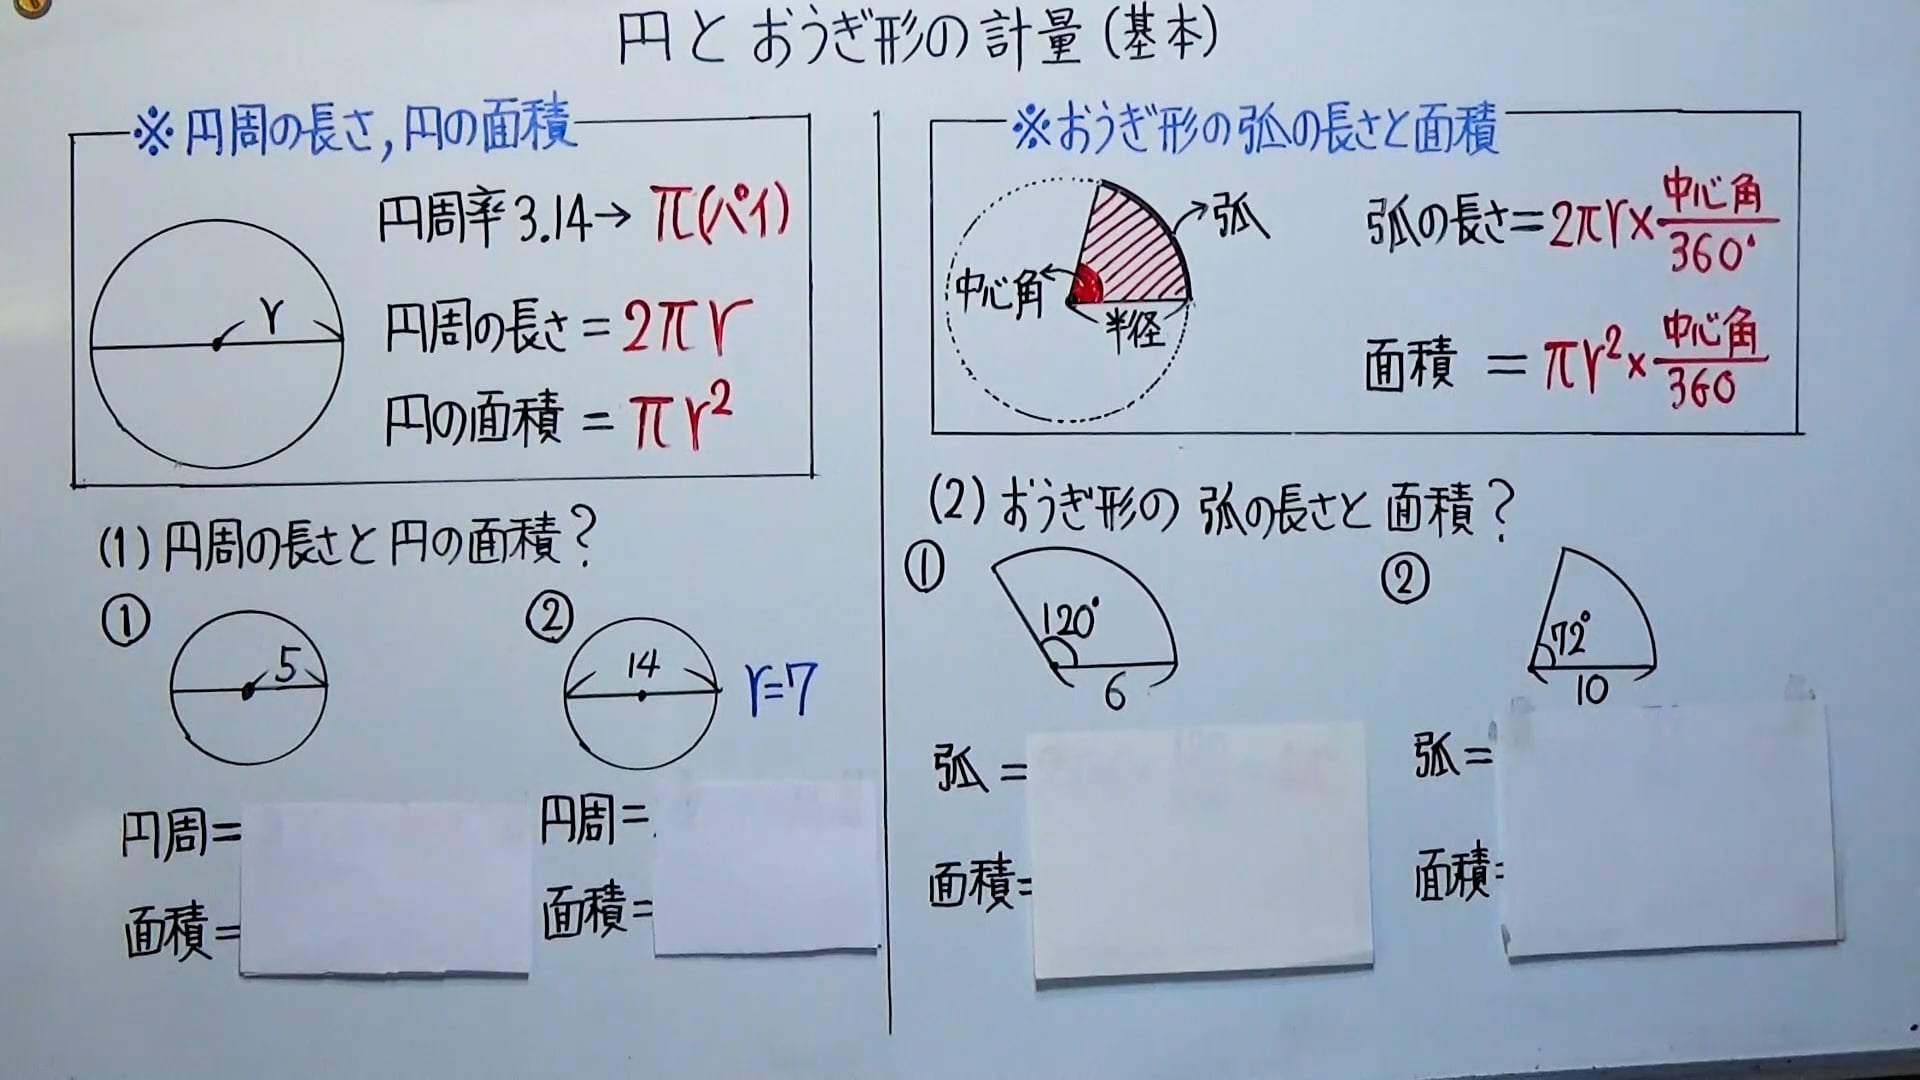 円とおうぎ形の計量(基本)
※円周の長さ,円の面積
円周率3.14→π(パイ)
r
円周の長さ=2πr
円の面積=πr²
(1)円周の長さと円の面積?
①
5
円周=
面積=
②
14
r=7
円周=
面積=
※おうぎ形の弧の長さと面積
弧
中心角
半径
弧の長さ=2πr×中心角/360°
面積=πr²×中心角/360
(2)おうぎ形の弧の長さと面積?
①
120°
6
弧=
面積=
②
72°
10
弧=
面積=